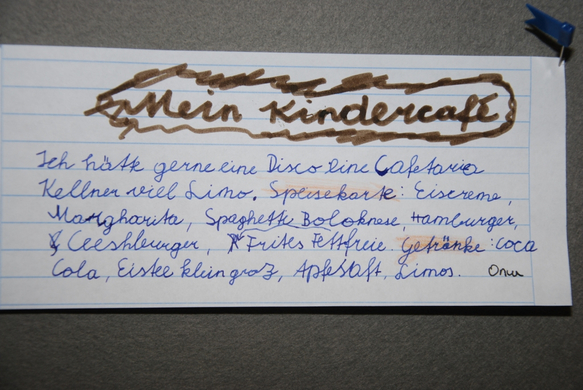 Mein Kindercafé
Ich hätte gerne eine Disco eine Cafetaria
Kellner viel Limo. Speisekarte: Eiscreme,
Margharita, Spaghette Boloknese, Hamburger,
Ceeshburger, Frites Fettfreie. Getränke: coca
Cola, Eistee klein groß, Apfelsaft, Limos. Onur